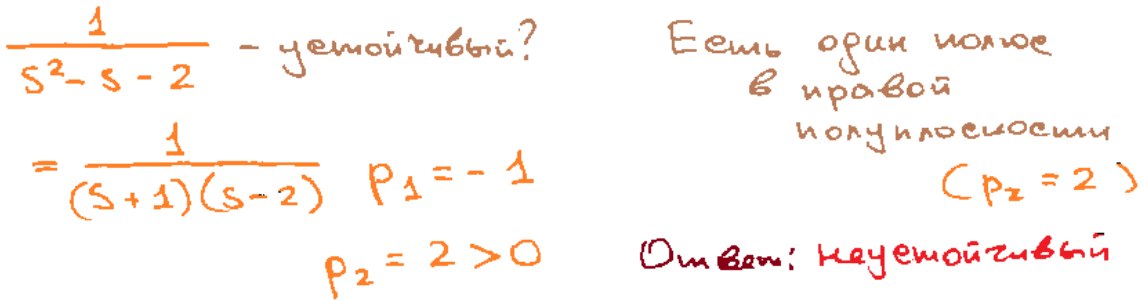 1/(s² - s - 2) - устойчивый?
= 1/((s + 1)(s - 2)) p₁ = - 1
p₂ = 2 > 0
Есть один полюс
в правой
полуплоскости
(p₂ = 2)
Ответ: неустойчивый